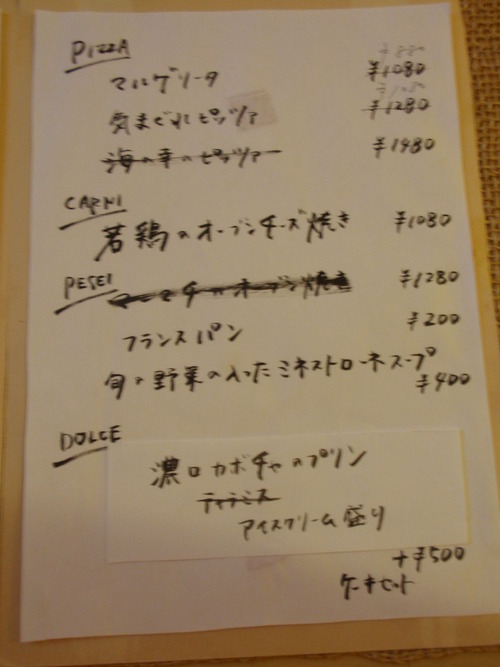 PIZZA
マルゲリータ ¥1080
気まぐれピッツァ ¥1280
海の幸のピッツァー ¥1480
CARNI
若鶏のオーブンチーズ焼き ¥1080
PESCI
のオーブン焼き ¥1280
フランスパン ¥200
旬の野菜の入ったミネストローネスープ
¥400
DOLCE
濃口カボチャのプリン
ティラミス
アイスクリーム盛り
+¥500
ケーキセット